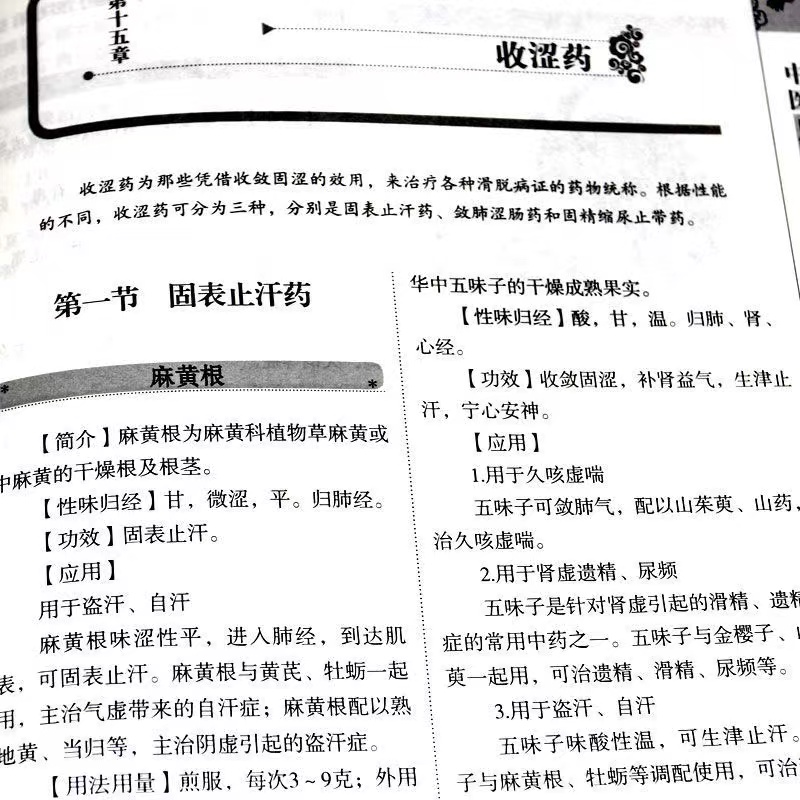 第十五章
收涩药
收涩药为那些凭借收敛固涩的效用，来治疗各种滑脱病证的药物统称。根据性能
的不同，收涩药可分为三种，分别是固表止汗药、敛肺涩肠药和固精缩尿止带药。
第一节 固表止汗药
麻黄根
【简介】麻黄根为麻黄科植物草麻黄或
中麻黄的干燥根及根茎。
【性味归经】甘，微涩，平。归肺经。
【功效】固表止汗。
【应用】
用于盗汗、自汗
麻黄根味涩性平，进入肺经，到达肌
表，可固表止汗。麻黄根与黄芪、牡蛎一起
用，主治气虚带来的自汗症；麻黄根配以熟
地黄、当归等，主治阴虚引起的盗汗症。
【用法用量】煎服，每次3~9克；外用
华中五味子的干燥成熟果实。
【性味归经】酸，甘，温。归肺、肾、
心经。
【功效】收敛固涩，补肾益气，生津止
汗，宁心安神。
【应用】
1.用于久咳虚喘
五味子可敛肺气，配以山茱萸、山药，
治久咳虚喘。
2.用于肾虚遗精、尿频
五味子是针对肾虚引起的滑精、遗精
症的常用中药之一。五味子与金樱子、
萸一起用，可治遗精、滑精、尿频等。
3.用于盗汗、自汗
五味子味酸性温，可生津止汗。
子与麻黄根、牡蛎等调配使用，可治
中
医